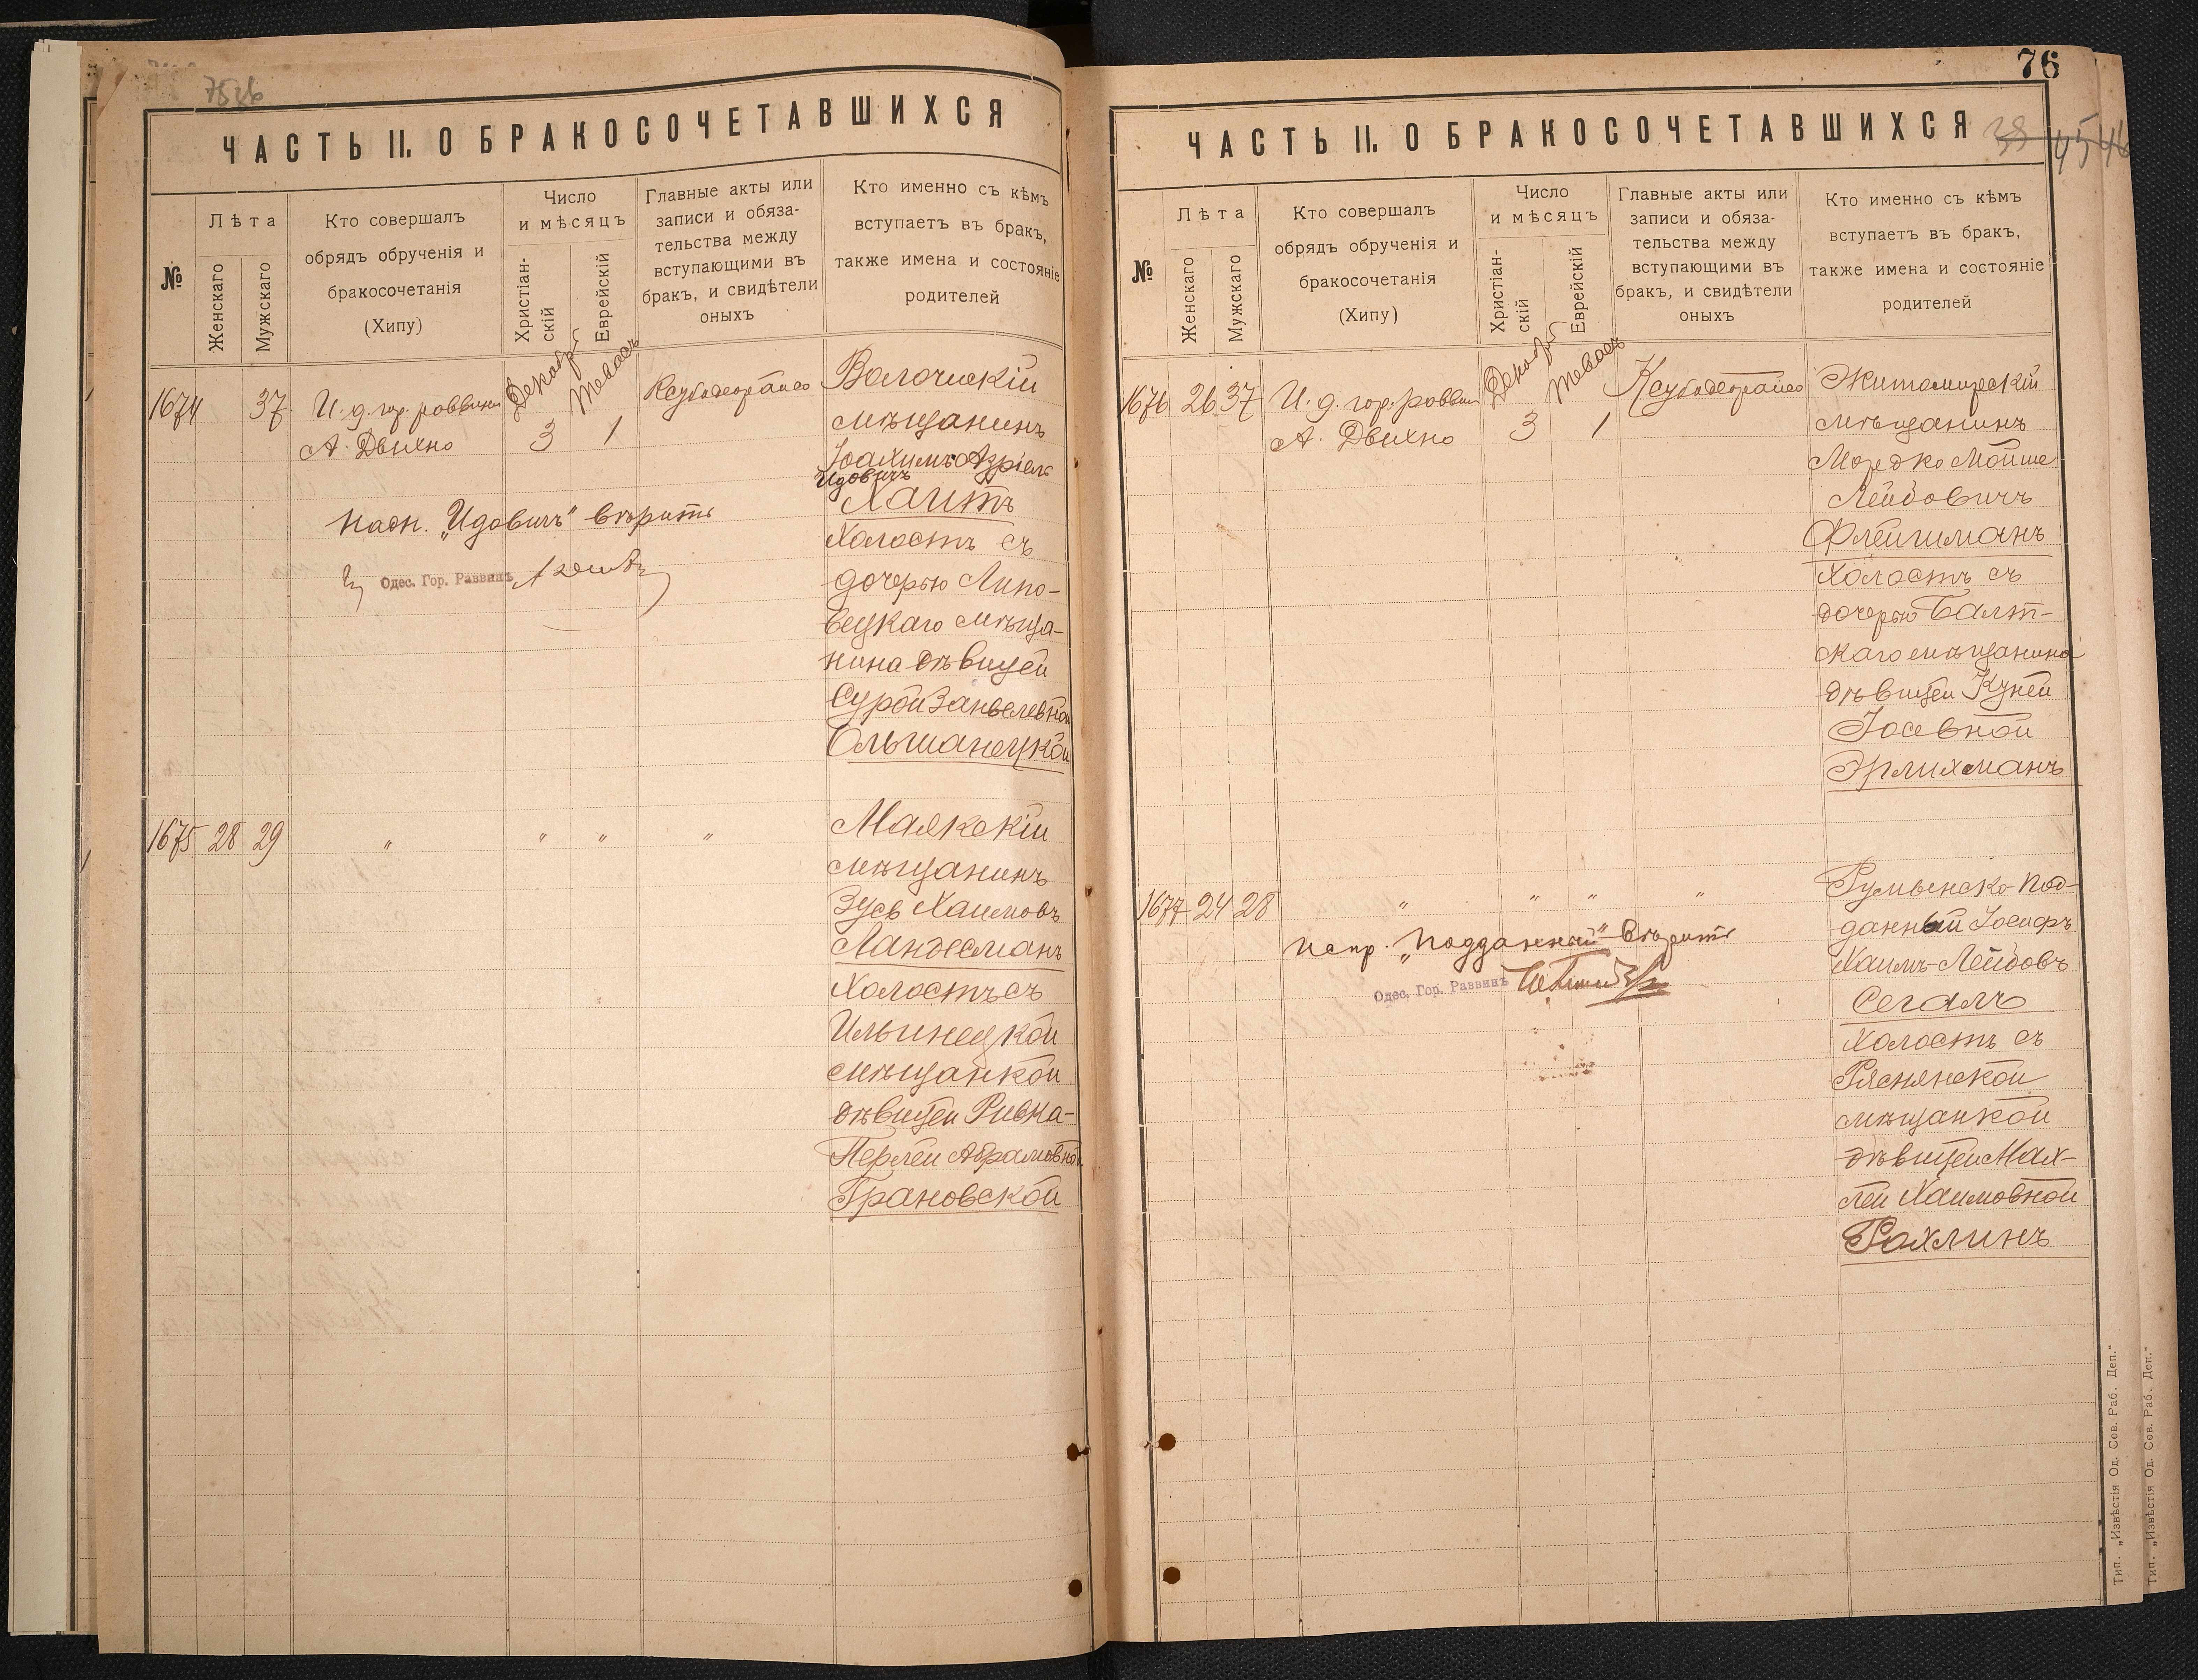 ЧАСТЬ II. О БРАКОСОЧЕТАВШИХСЯ
№
Лѣта
Женскаго
Мужскаго
Кто совершалъ
обрядъ обрученія и
бракосочетанія
(Хипу)
Число
и мѣсяцъ
Христіан-
скій
Еврейскій
Главные акты или
записи и обяза-
тельства между
вступающими въ
бракъ, и свидѣтели
оныхъ
Кто именно съ кѣмъ
вступаетъ въ бракъ,
также имена и состояніе
родителей
1674
37
И. д. гор. раввина
А. Двихно
Декабрь
3
Теваесъ
1
Волочискій
мѣщанинъ
Іоахимъ Азріель
Идовичъ
Хаитъ
Холостъ съ
дочерью Липо-
вецкаго мѣща-
нина дѣвицей
Сурой Занвелевной
Ольшанецкой
надп. „Идовичъ" вѣрить
Одес. Гор. Раввинъ
1675 28 29
" " " "
Маякскій
мѣщанинъ
Зусь Хаимовъ
Ландесманъ
Холостъ съ
Ильинецкой
мѣщанкой
дѣвицей Ривка-
Перлей Абрамовной
Грановской
76
38 45 46
ЧАСТЬ II. О БРАКОСОЧЕТАВШИХСЯ
№
Лѣта
Женскаго
Мужскаго
Кто совершалъ
обрядъ обрученія и
бракосочетанія
(Хипу)
Число
и мѣсяцъ
Христіан-
скій
Еврейскій
Главные акты или
записи и обяза-
тельства между
вступающими въ
бракъ, и свидѣтели
оныхъ
Кто именно съ кѣмъ
вступаетъ въ бракъ,
также имена и состояніе
родителей
1676 26 37
И. д. гор. раввин
А. Двихно
Декабрь
3
Теваесъ
1
Житомирскій
мѣщанинъ
Мордко Мойше
Лейбовичъ
Флейшманъ
Холостъ съ
дочерью Балт-
скаго мѣщанина
дѣвицей Куней
Іосевной
Эрлихманъ
1677 24 28
" " " "
Румынско-под-
данный Іосифъ
Хаимъ-Лейбовъ
Сегалъ
Холостъ съ
Ряснянской
мѣщанкой
дѣвицей Мах-
лей Хаимовной
Рохлинъ
испр. „подданный" вѣрить
Одес. Гор. Раввинъ
Тип. „Извѣстія Од. Сов. Раб. Деп."
Тип. „Извѣстія Од. Сов. Раб. Деп."